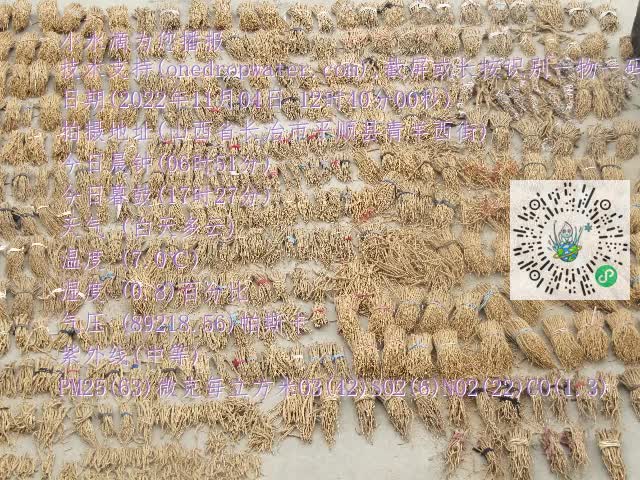 小水滴为您播报
技术支持(onedropwater.com)截屏或长按识别一物一码
日期(2022年11月01日 12时10分00秒)
拍摄地址(山西省长治市平顺县青羊西街)
今日晨钟(06时51分)
今日暮鼓(17时27分)
天气 (白天多云)
温度 (7.0℃)
湿度 (0.8)百分比
气压 (89218.56)帕斯卡
紫外线(中等)
PM25(63)微克每立方米O3(42)SO2(6)NO2(22)CO(1.3)